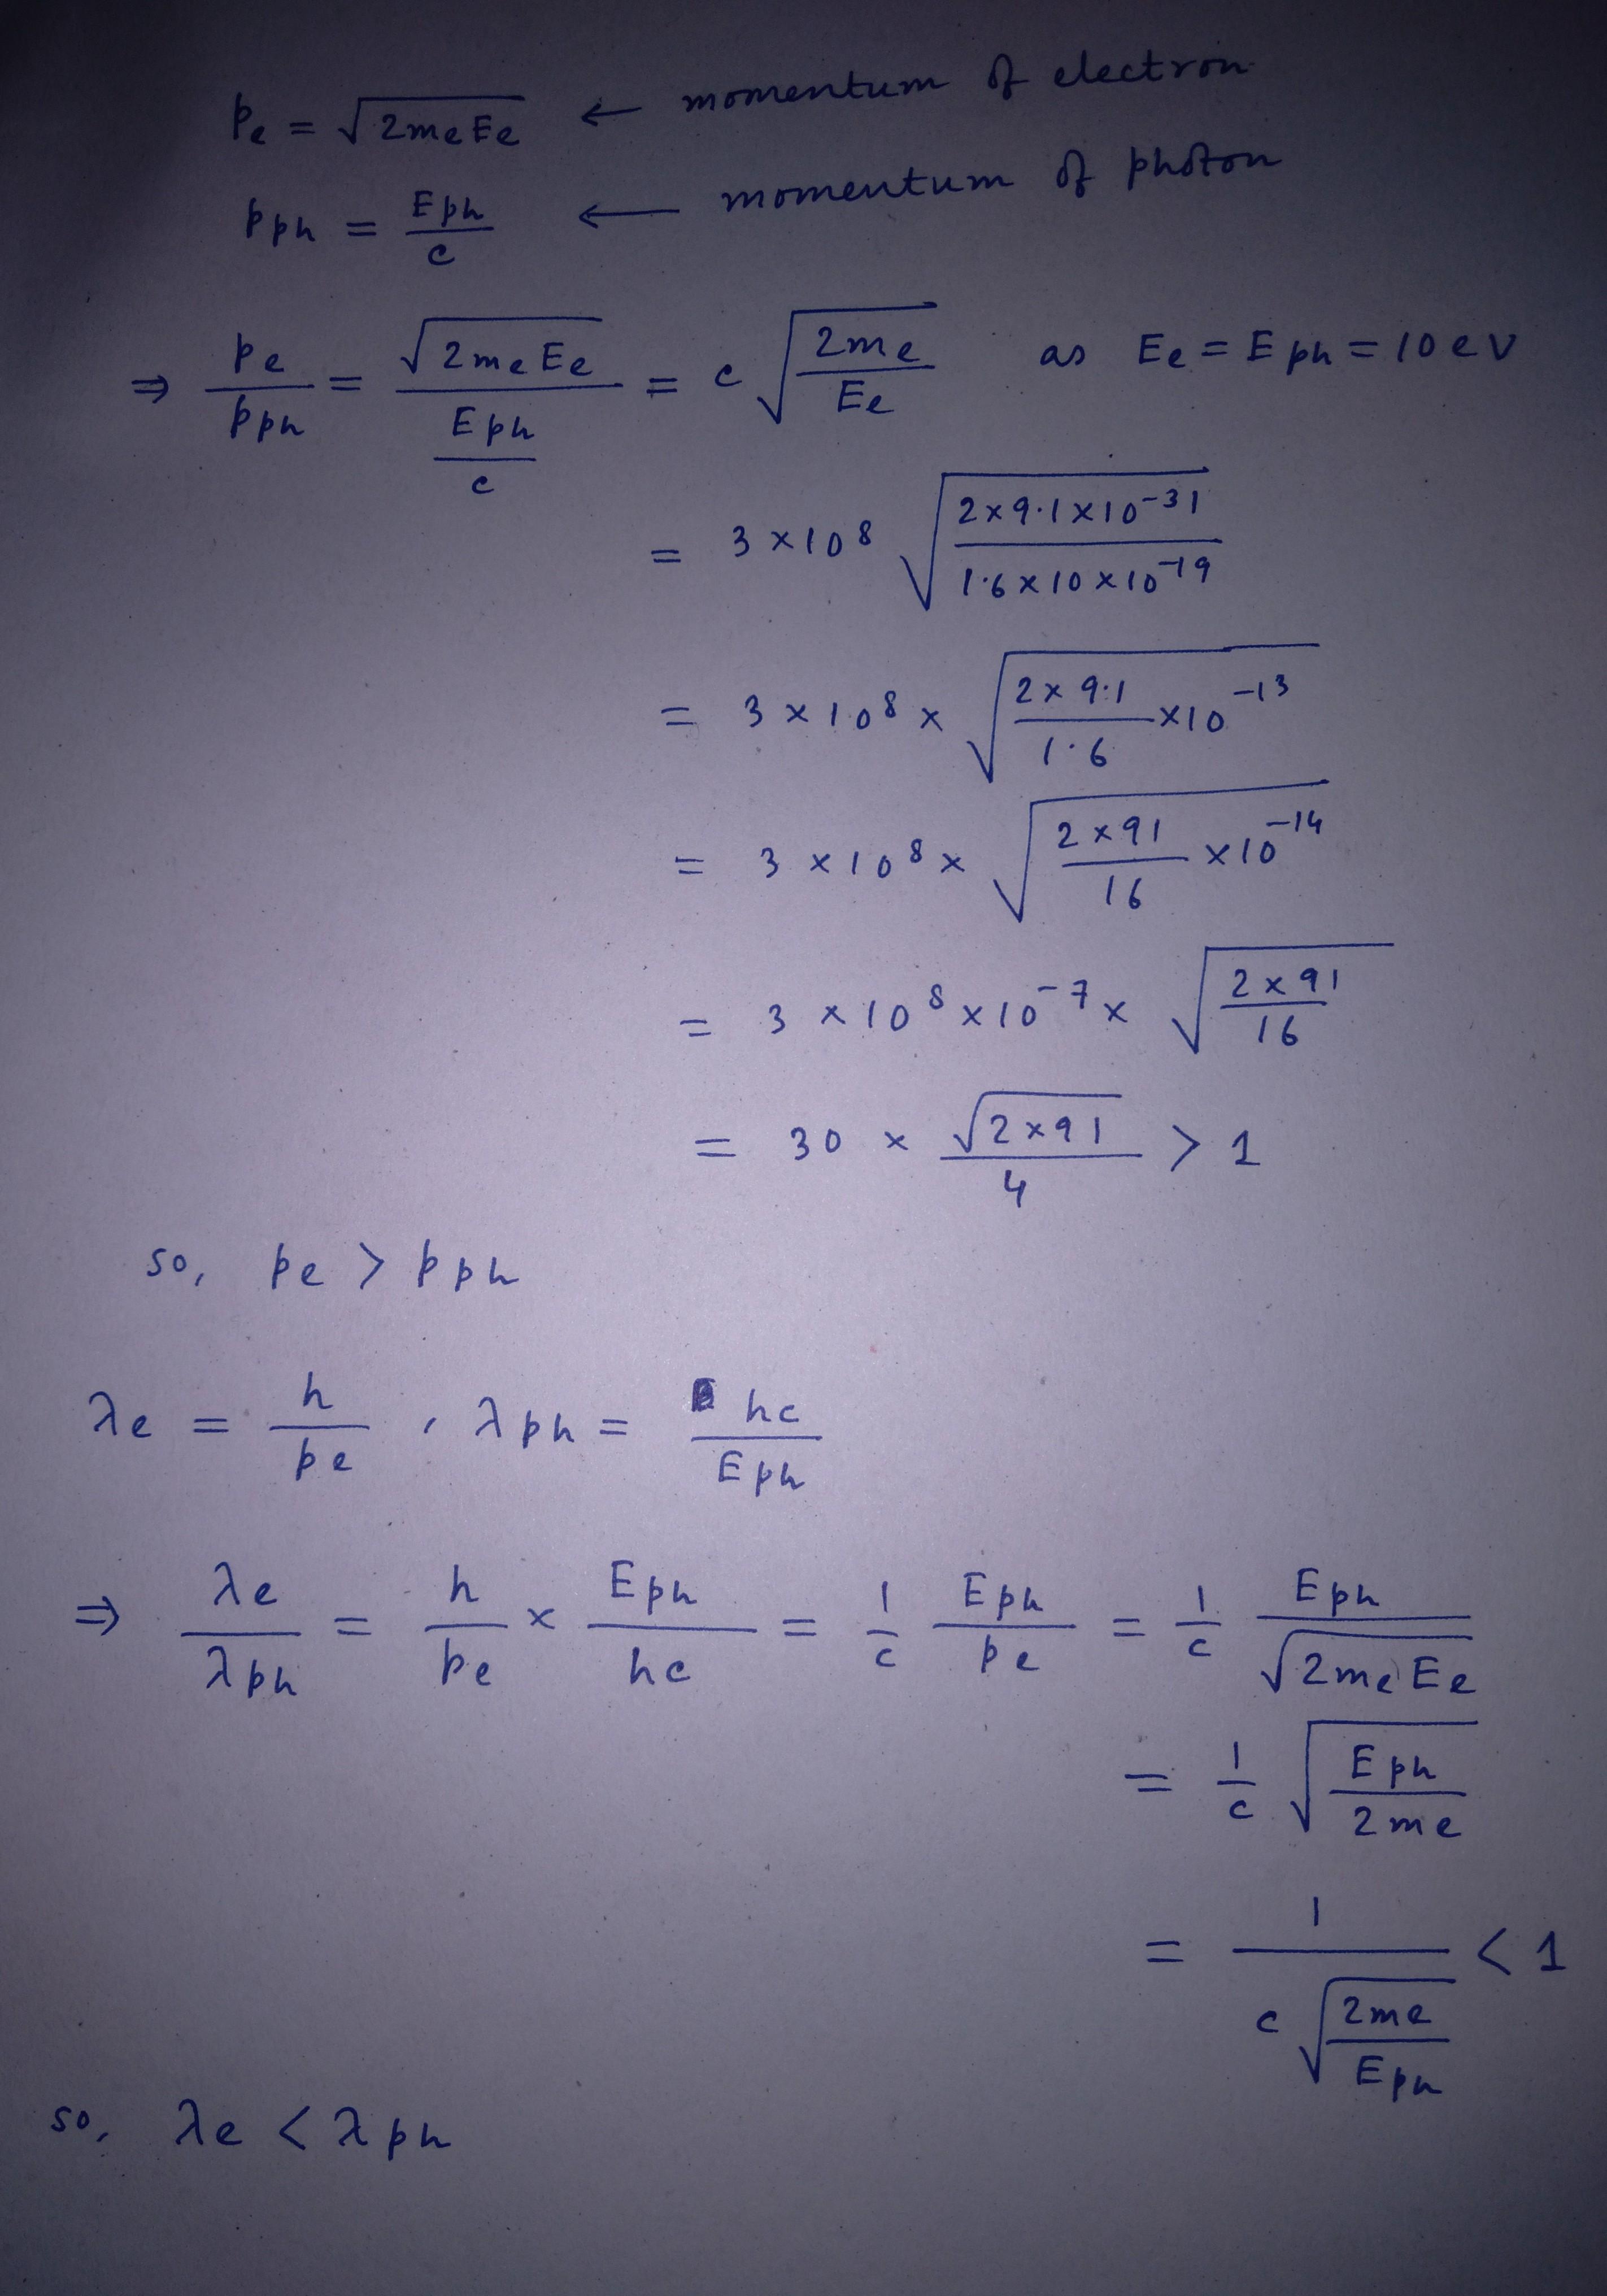 pe = √(2meEe) ← momentum of electron
pph = Eph/c ← momentum of photon
⇒ pe/pph = √(2meEe)/(Eph/c) = c√(2me/Ee) as Ee = Eph = 10 eV
= 3×10⁸ √((2×9.1×10⁻³¹)/(1.6×10×10⁻¹⁹))
= 3×10⁸ × √((2×9.1)/1.6 ×10⁻¹³)
= 3×10⁸ × √((2×91)/16 ×10⁻¹⁴)
= 3×10⁸×10⁻⁷× √((2×91)/16)
= 30 × √(2×91)/4 > 1
so, pe > pph
λe = h/pe , λph = hc/Eph
⇒ λe/λph = h/pe × Eph/hc = 1/c Eph/pe = 1/c Eph/√(2meEe)
= 1/c √(Eph/2me)
= 1/(c√(2me/Eph)) < 1
so, λe < λph